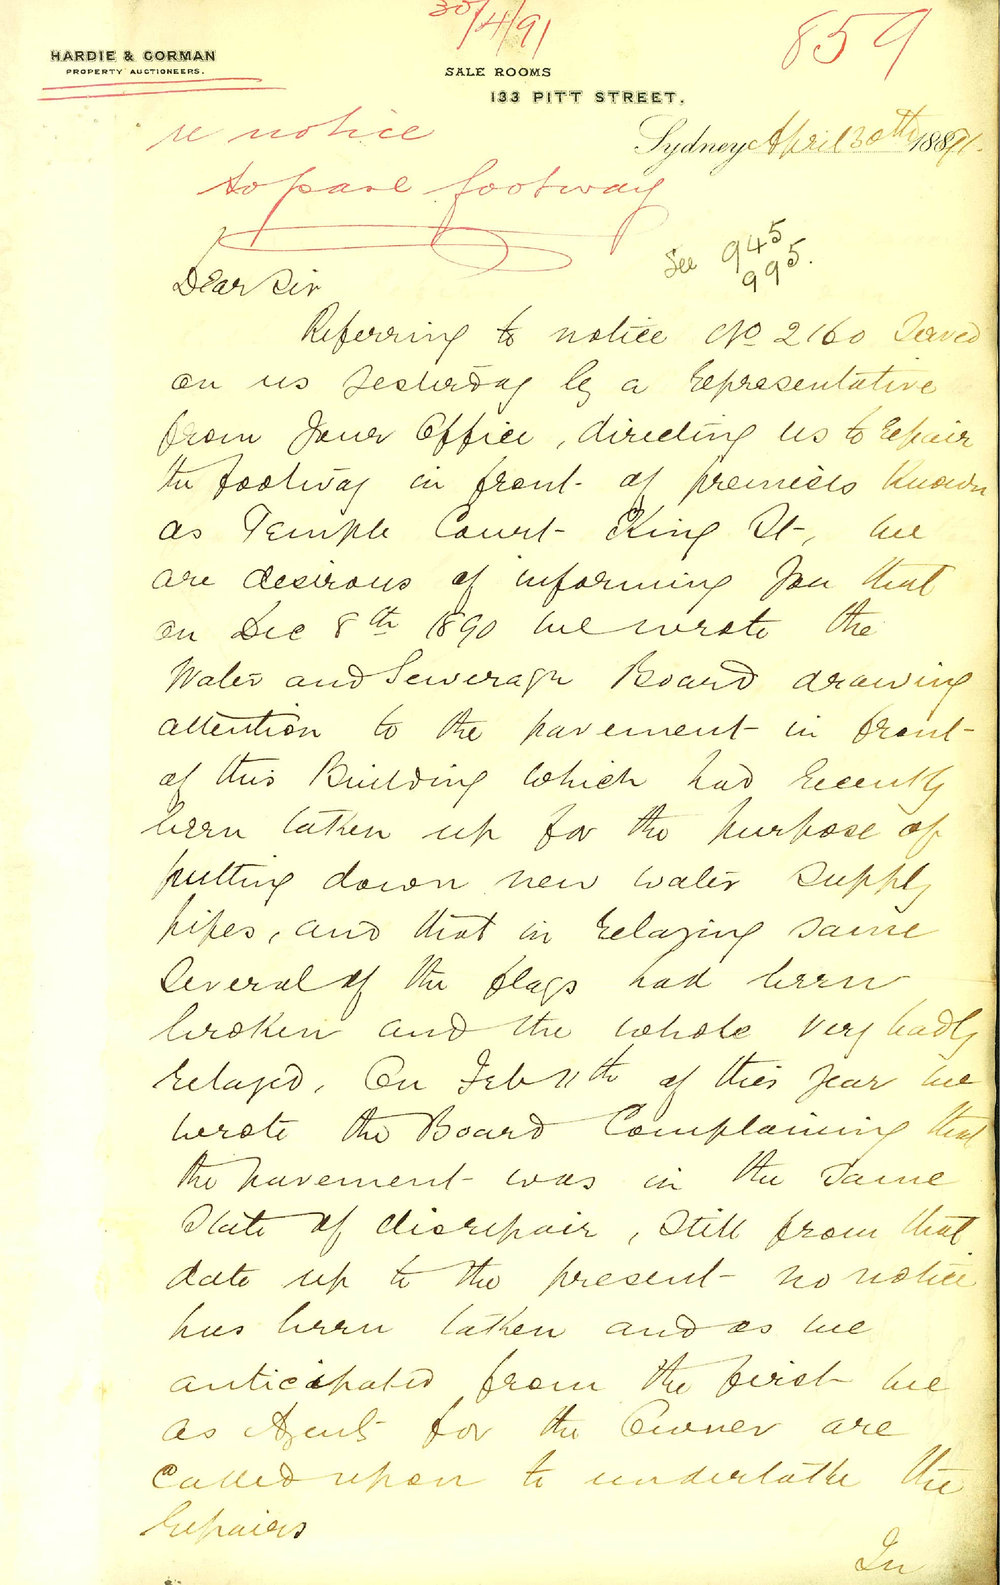 30/4/91
859
HARDIE & GORMAN
PROPERTY AUCTIONEERS.
SALE ROOMS
133 PITT STREET.
re notice
to pave footway
Sydney April 30th 1891.
See 945
995.
Dear Sir
Referring to notice No 2160 Served
on us yesterday by a representative
from your Office, directing us to repair
the footway in front of premises known
as Temple Court King St, we
are desirous of informing you that
on Dec 8th 1890 we wrote the
Water and Sewerage Board drawing
attention to the pavement in front
of this Building which had recently
been taken up for the purpose of
putting down new water supply
pipes, and that in relaying same
several of the flags had been
broken and the whole very badly
relayed. On Feb 11th of this year we
wrote the Board Complaining that
the pavement was in the same
state of disrepair, still from that
date up to the present no notice
has been taken and as we
anticipated from the first we
as Agents for the Owner are
called upon to undertake the
repairs
In